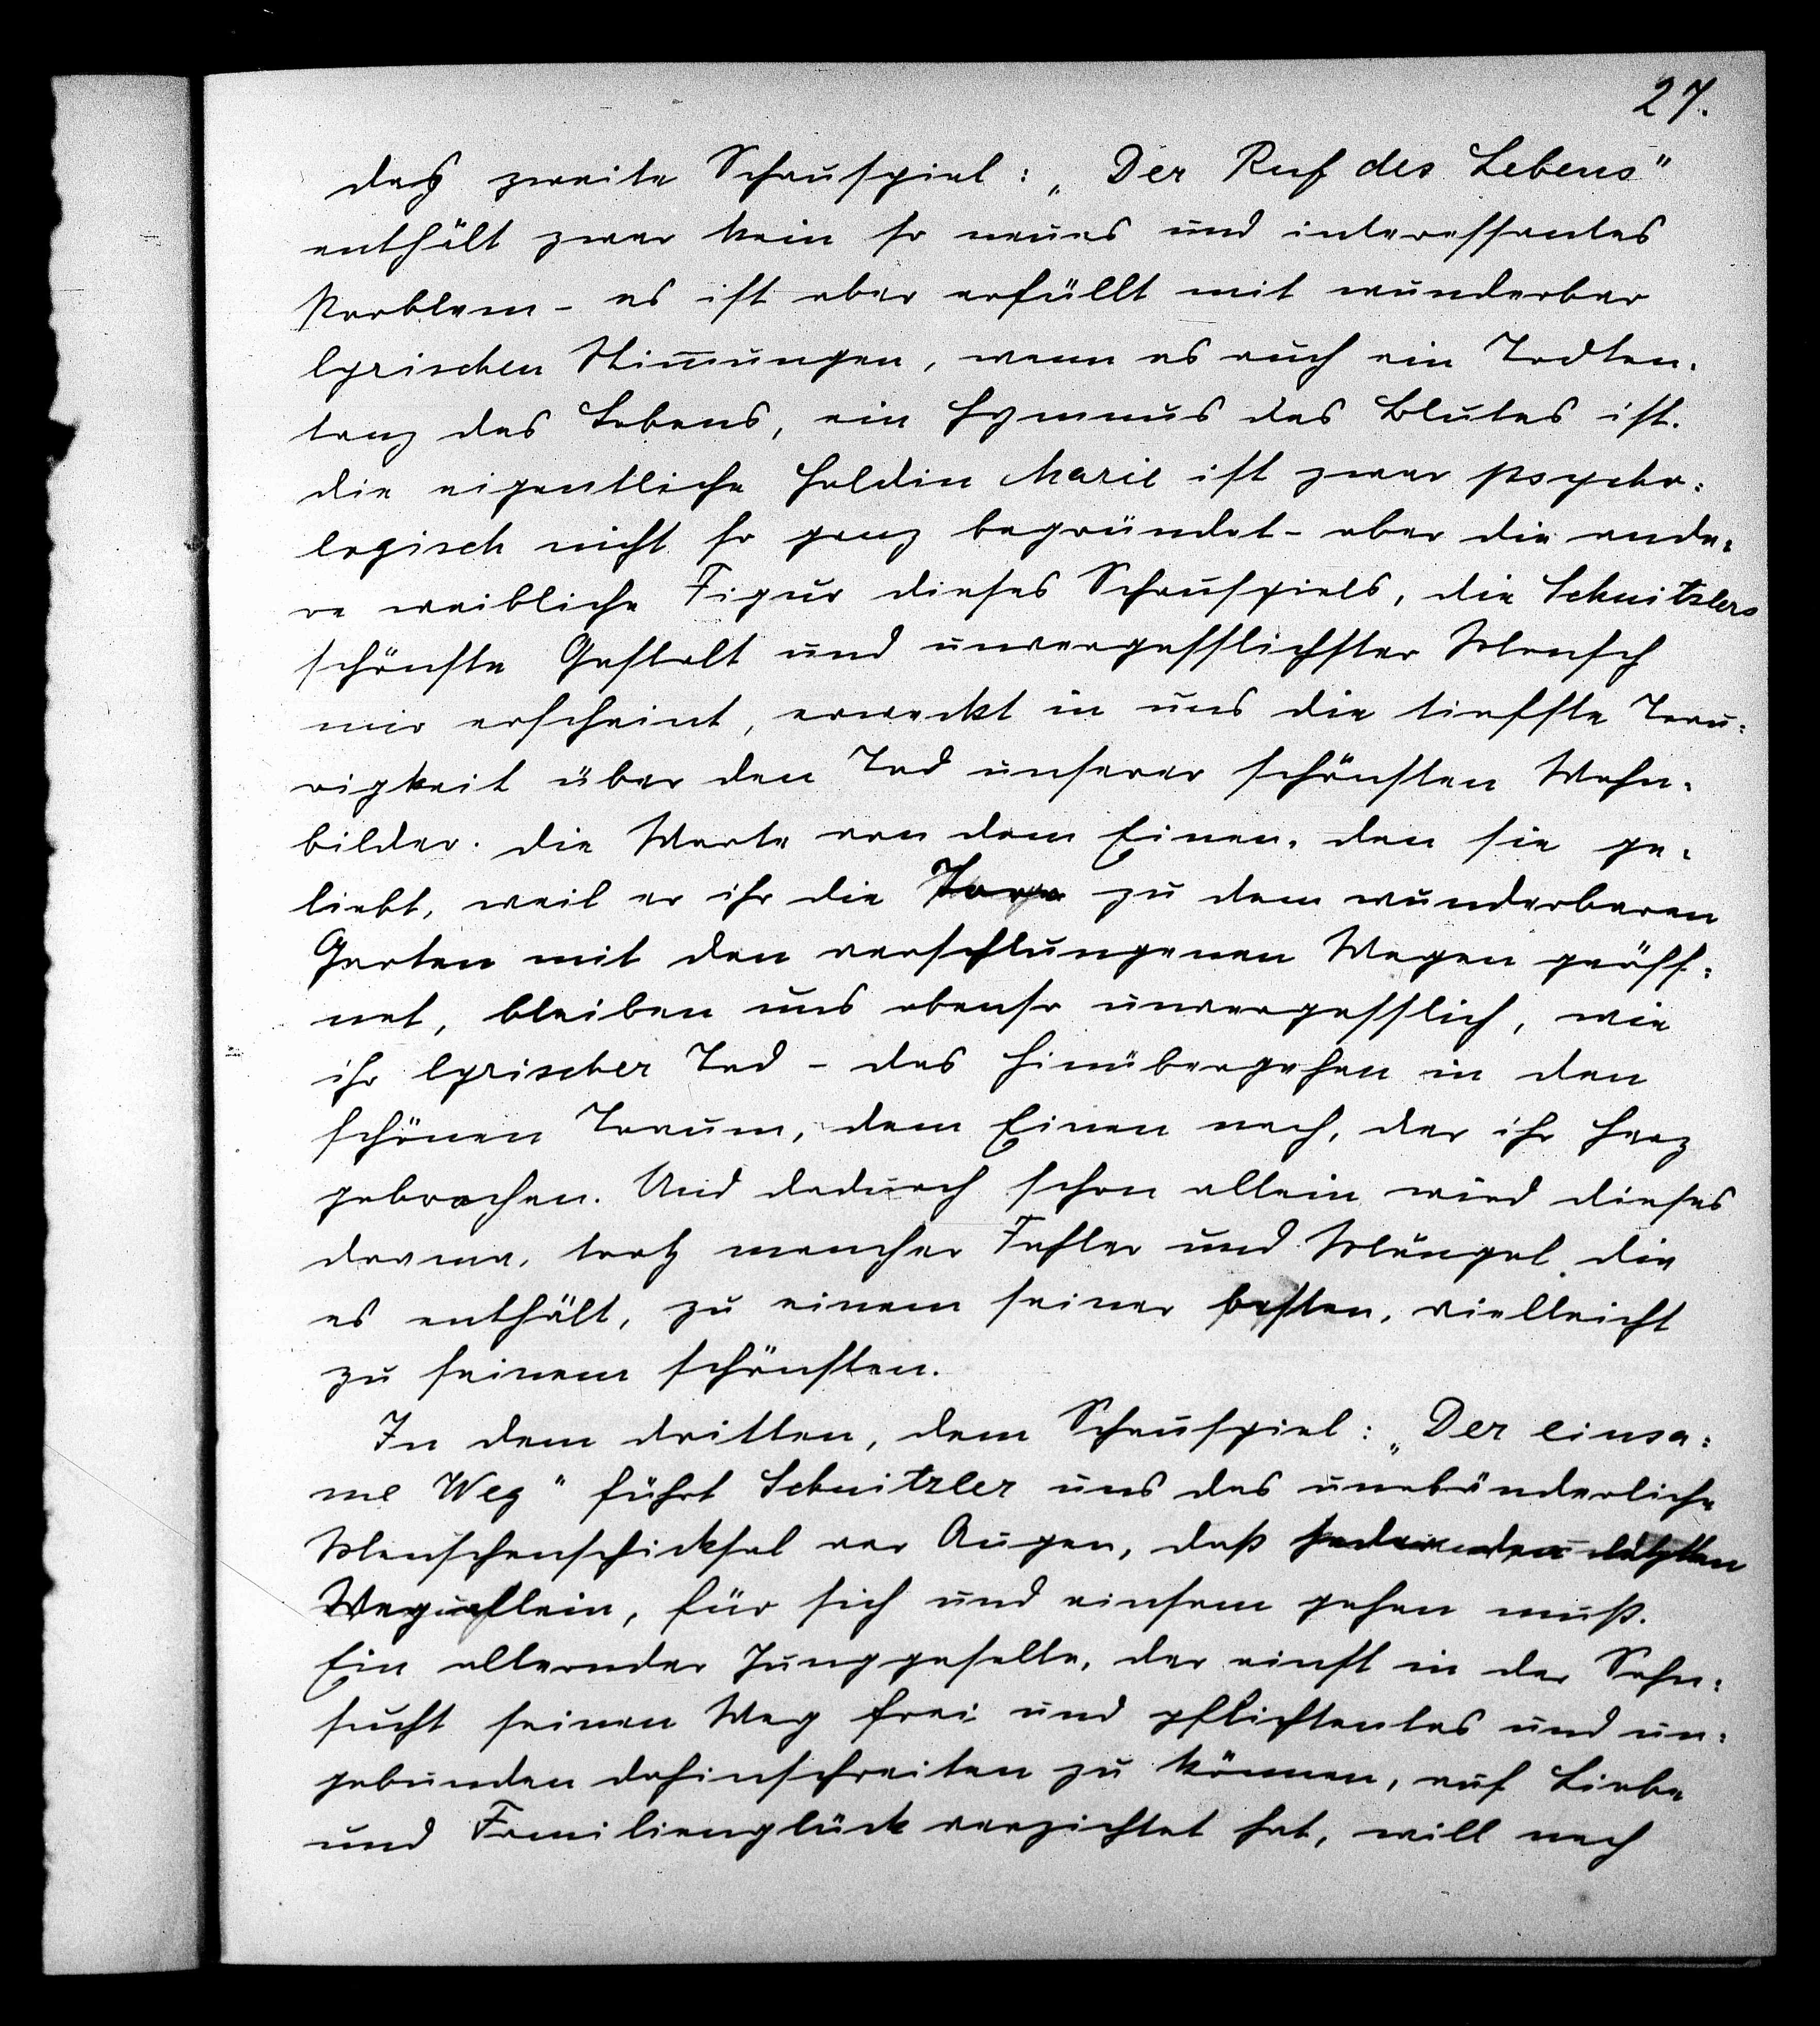 27.
Das zweite Schauspiel: „Der Ruf des Lebens"
enthält zwar kein so neues und interessantes
Problem - es ist aber erfüllt mit wunderbar
lyrischen Stim̄ungen, wenn es auch ein Todten-
tanz des Lebens, ein Hymnus des Blutes ist.
Die eigentliche Heldin Marie ist zwar psycho=
logisch nicht so ganz begründet - aber die ande=
re weibliche Figur dieses Schauspiels, die Schnitzlers
schönste Gestalt und unvergesslichster Mensch
mir erscheint, erweckt in uns die tiefste Trau=
rigkeit über den Tod unserer schönsten Wahn-
bilder. Die Worte von dem Einen, den sie ge-
liebt, weil er ihr die Tore zu dem wunderbaren
Garten mit den verschlungenen Wegen geöff=
net, bleiben uns ebenso unvergesslich, wie
ihr lyrischer Tod - das Hinübergehen in den
schönen Traum, dem Einen nach, der ihr Herz
gebrochen. Und dadurch schon allein wird dieses
Drama, trotz mancher Fehler und Mängel, die
es enthält, zu einem seiner besten, vielleicht
zu seinem schönsten.
In dem dritten, dem Schauspiel: „Der einsa=
me Weg" führt Schnitzler uns das unabänderliche
Menschenschicksal vor Augen, daß jeder den letzten
Weg allein, für sich und einsam gehen muß.
Ein alternder Junggeselle, der einst in der Sehn=
sucht seinen Weg frei und pflichtenlos und un=
gebunden dahinschreiten zu können, auf Liebe
und Familienglück verzichtet hat, will nach